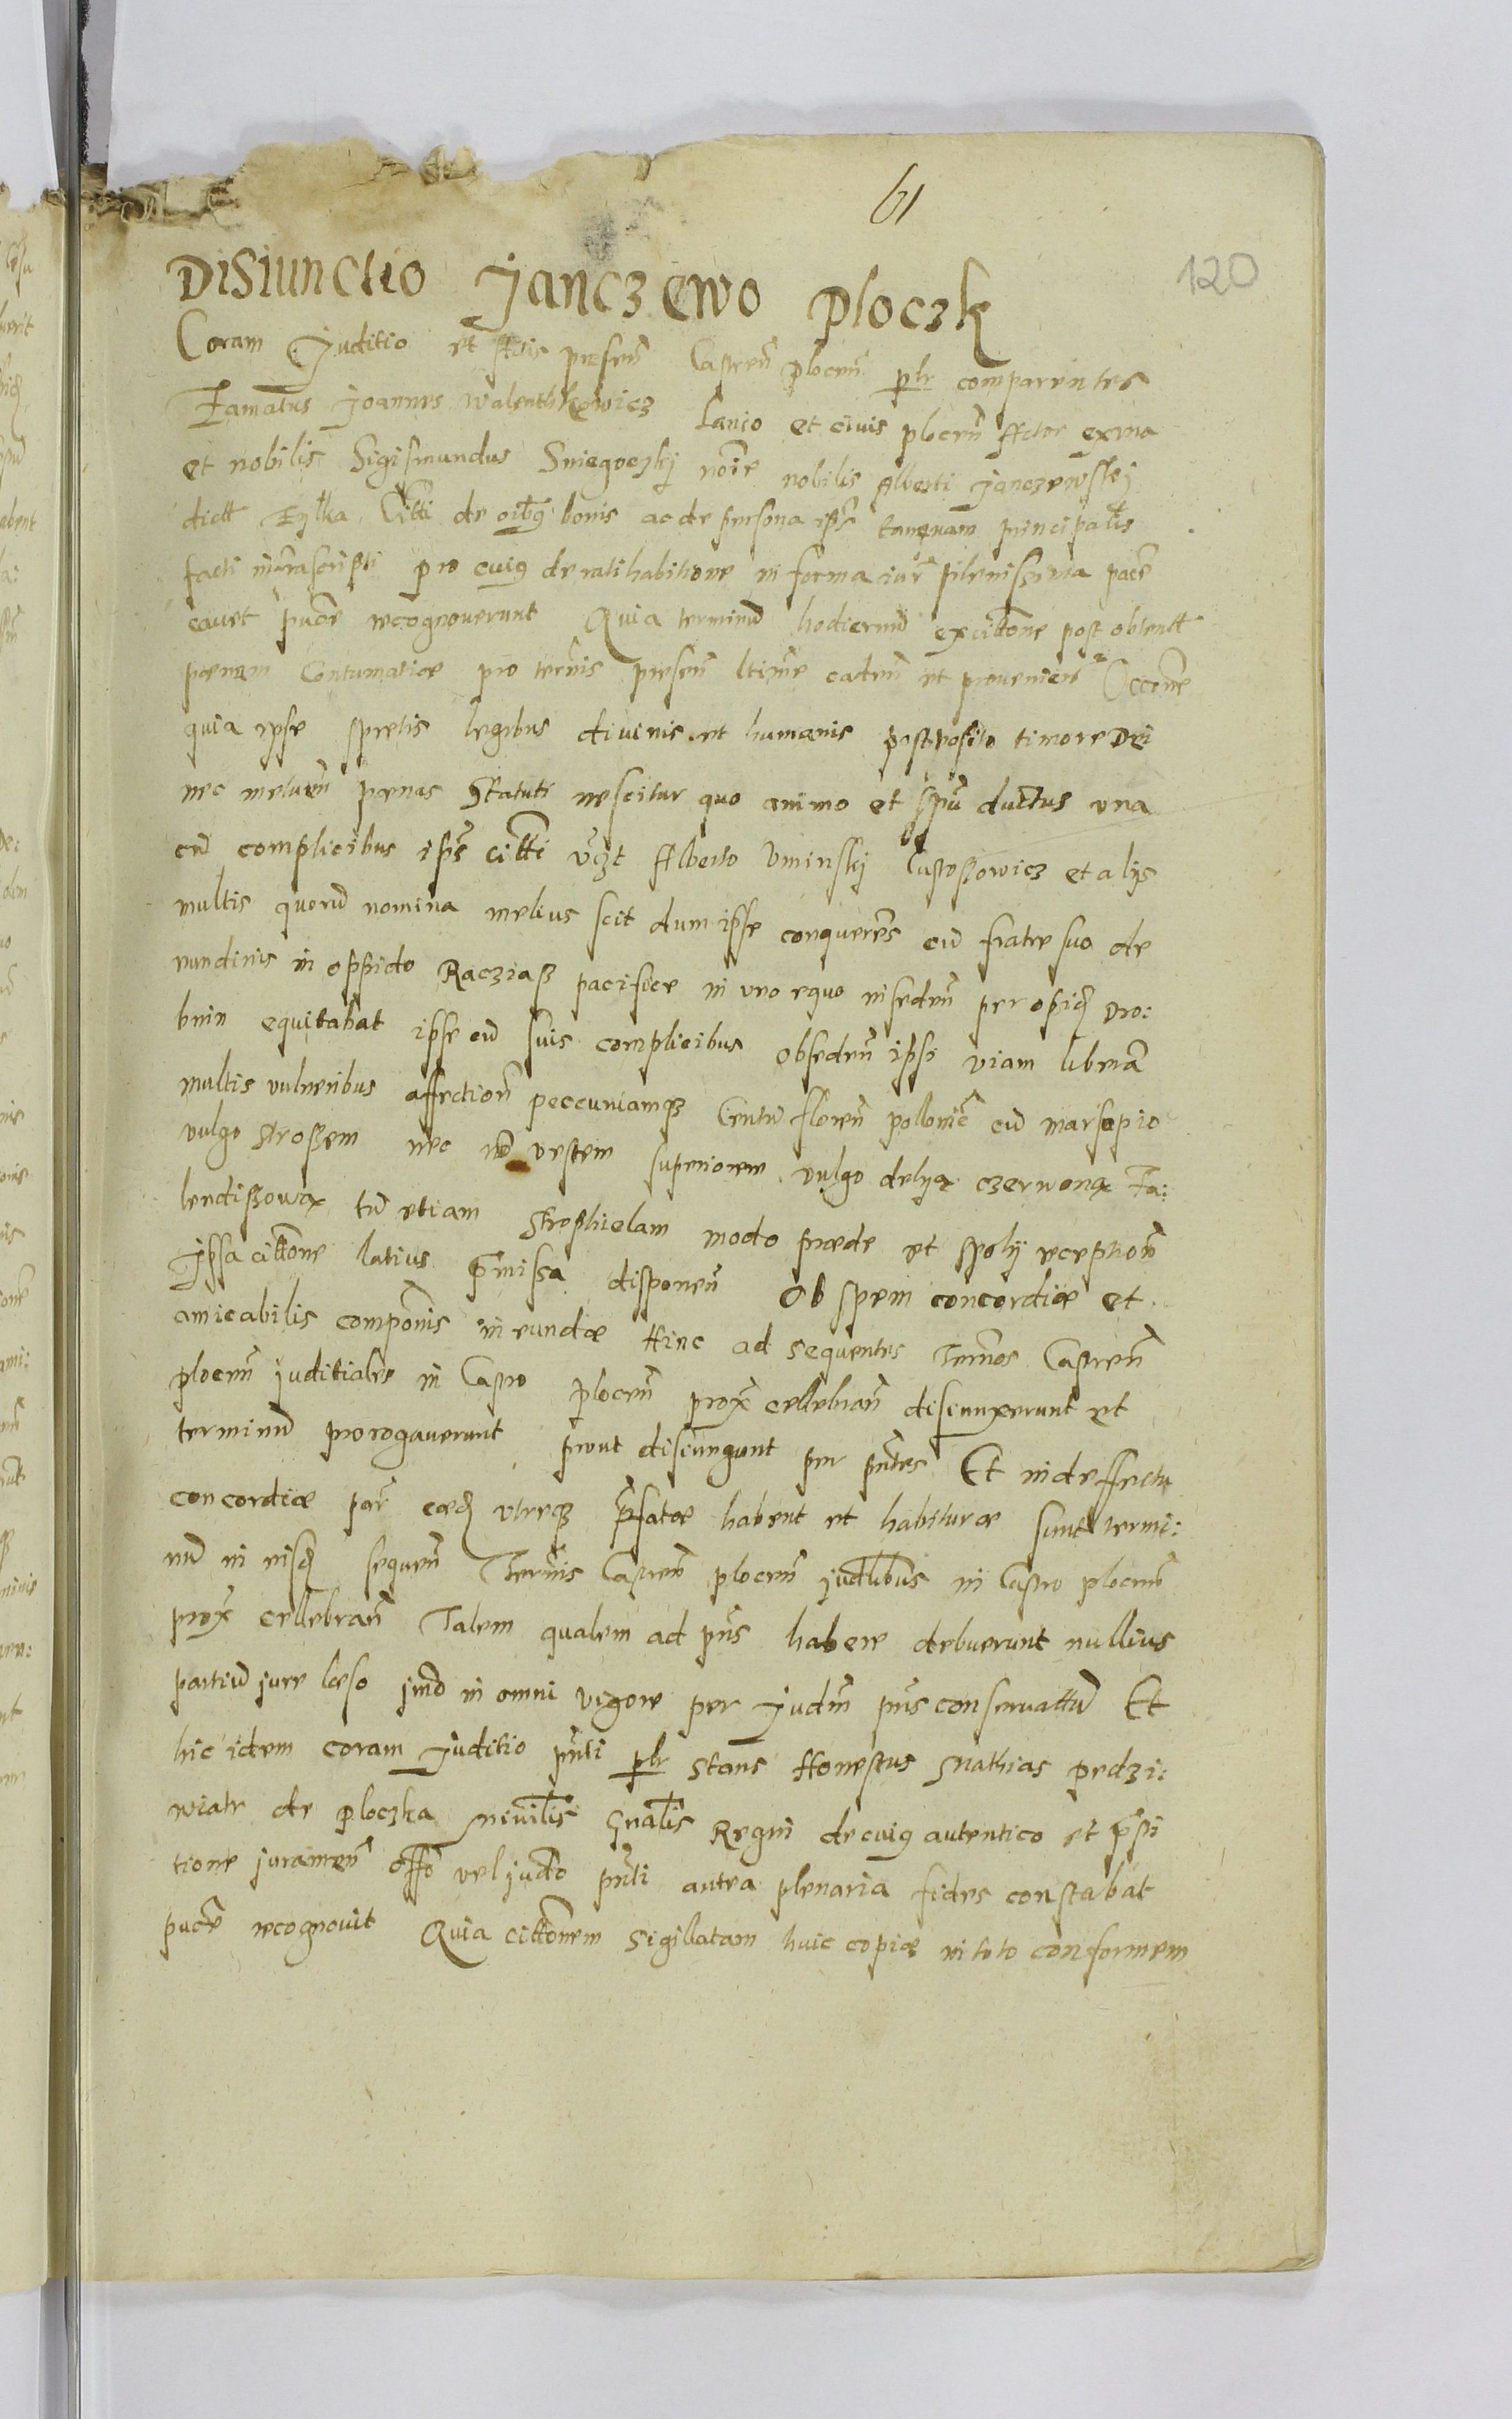 61
120
Disiunctio Janczewo Ploczk
Coram Juditio et Actis presen Castren plocen plr comparentes
Famatus Joannes Walenthkowicz Lanio et civis plocen Actor ex una
et nobilis Sigismundus Sniegoczkj noie nobilis Alberti Janczewskj
dictt Fylka Citti de oibq bonis ac de persona ips tanquam principalis
facti infrascripti pro cuiq de ratihabitione in forma iur plenissima pace
cavet puce recognoverunt Quia terminu hodiernu ex cittone post obtentt
penam Contumatiæ pro ternis presen ltime caden et provenien Occone
quia ipse spretis legibus divinis et humanis postposito timore Dei
nec metuen pænas Statuti nescitur quo animo et spu ductus una
cu complicibus ips citti vczt Alberto Uminskj et alijs
multis quoru nomina melius scit dum ipse conqueres cu fratre suo de
nundinis in oppido Raczias pacifice in uno equo inseden per opid Dro:
bnin equitabat ipse cu suis complicibus obseden ipsi viam libera
multis vulneribus affection peccuniamq Centu floren pollonic cu marsupio
vulgo strossem nec no vestem superiorem vulgo deliya czerwona Fa:
lendissowa tu etiam modo præde et spolij reception
Ipsa cittone latius pmissa disponen Ob spem concordiæ et
amicabilis componis ineundæ Hinc ad sequentes Termos Castren
plocen juditiales in Castro plocen prox cellebran disiunxerunt et
terminu prorogaverunt prout disiungunt per pntes Et in deffectu
concordiæ par eæd utreq pfatæ habent et habituræ sunt termi:
nu in eisd sequen Termis Castren plocen judlibus in Castro plocen
prox cellebran Talem qualem ad pns habere debuerunt nullius
partiu jure læso jmo in omni vigore per Judm pns conservattu Et
hic idem coram Juditio pnti plr stans Honestus Mathias Pedzi:
wiatr de Ploczka Mnilis Gnalis Regni de cuiq autentico et psti
tione juramen offo vel judo pnti antea plenaria fides constabat
puce recognovit Quia cittonem sigillatam huic copiæ in toto conformem